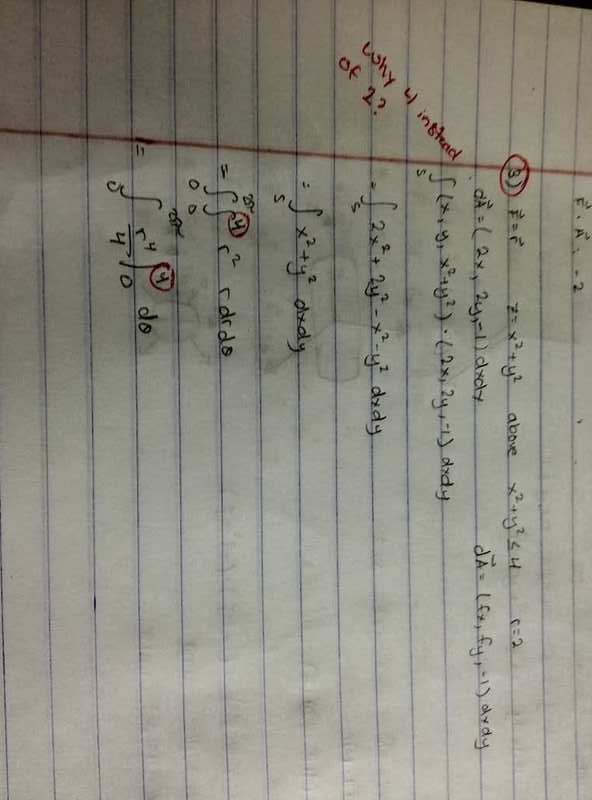 F⃗ · A⃗ = -2
3) F⃗ = r⃗ z = x² + y² above x² + y² ≤ 4 r = 2
dA⃗ = (2x, 2y, -1) dxdy dA⃗ = (fx, fy, -1) dxdy
∫_S (x, y, x² + y²) · (2x, 2y, -1) dxdy
why 4 instead of 2?
= ∫_S 2x² + 2y² - x² - y² dxdy
= ∫_S x² + y² dxdy
= ∫_0^2π ∫_0^4 r² r dr dθ
= ∫_0^2π r⁴/4 ]_0^4 dθ